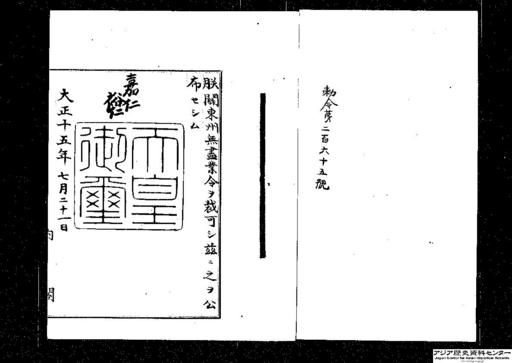 勅令第二百六十五號
朕關東州無盡業令ヲ裁可シ茲ニ之ヲ公
布セシム
嘉仁
裕仁
天皇御璽
大正十五年七月二十一日
内閣
アジア歴史資料センター
Japan Center for Asian Historical Records